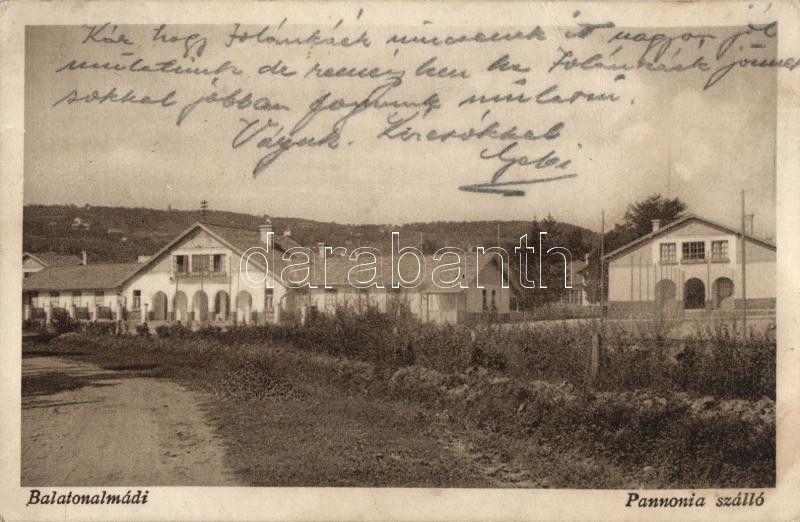 Kár hogy Jolánkáék nincsenek itt nagyon jól
mulatunk de remény ken hs Jolánkáék jönnek
sokkal jobban fogunk mulatni.
Várjuk. Kircsókkal
Gebi
darabanth
Balatonalmádi
Pannonia szálló